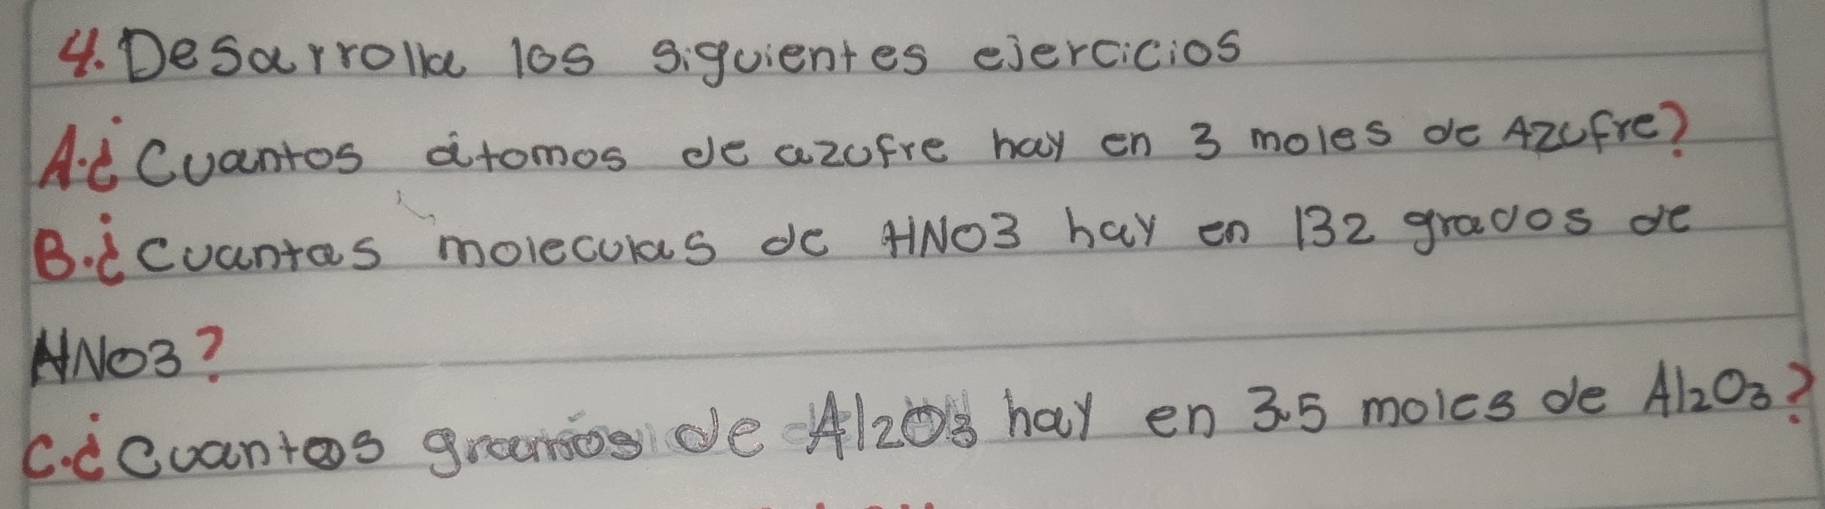 4. Desarrolla los siguientes ejercicios
A. ¿Cuantos átomos de azufre hay en 3 moles de Azufre?
B. ¿Cuantas moleculas de HNO3 hay en 132 grados de
HNO3?
C. ¿Cuantos gramos de Al2O3 hay en 3.5 moles de Al2O3?